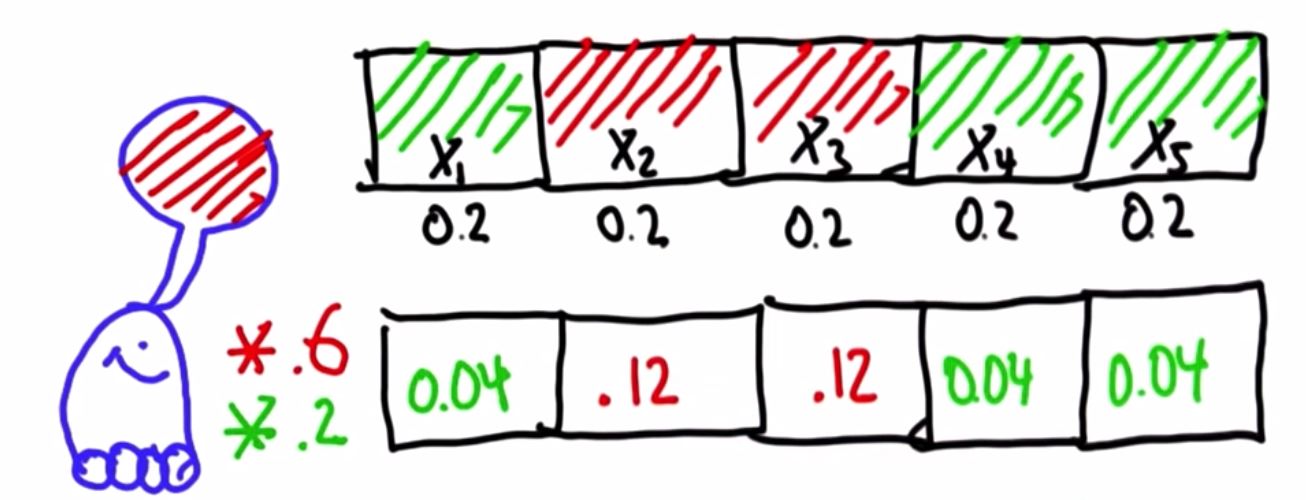 X₁ X₂ X₃ X₄ X₅
0.2 0.2 0.2 0.2 0.2
* .6
* .2
0.04 .12 .12 0.04 0.04